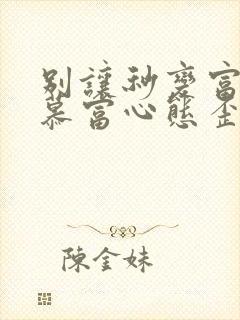 別讓秒變富
慕富心態歪
陳金妹